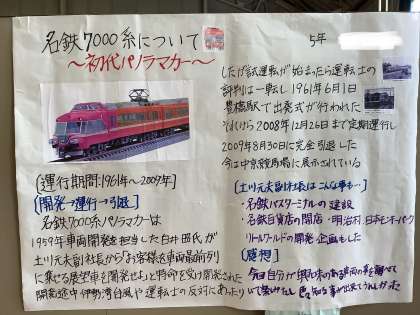 名鉄7000系について
～初代パノラマカー～
5年
[運行期間:1961年～2009年]
[開発→運行→引退]
名鉄7000系パノラマカーは
1959年車両開発を担当した白井昭氏が
土川元夫副社長から「お客様を車両最前列
に乗せる展望車を開発せよ」と特命を受け開発された
開発途中伊勢湾台風や運転士の反対にあったり
したが試運転が始まったら運転士の
評判は一転し1961年6月1日
豊橋駅で出発式が行われた
それから2008年12月26日まで定期運行し
2009年8月30日に完全引退した
今は中京競馬場に展示されている
[土川元夫副社長はこんな事も…]
・名鉄バスターミナルの建設
・名鉄百貨店の開店・明治村、日本モンキーパーク
リトルワールドの開発、企画もした
[感想]
今回自分が興味のある車両の事を調べて
いて驚いたし 色々知る事が出来てうれしかった